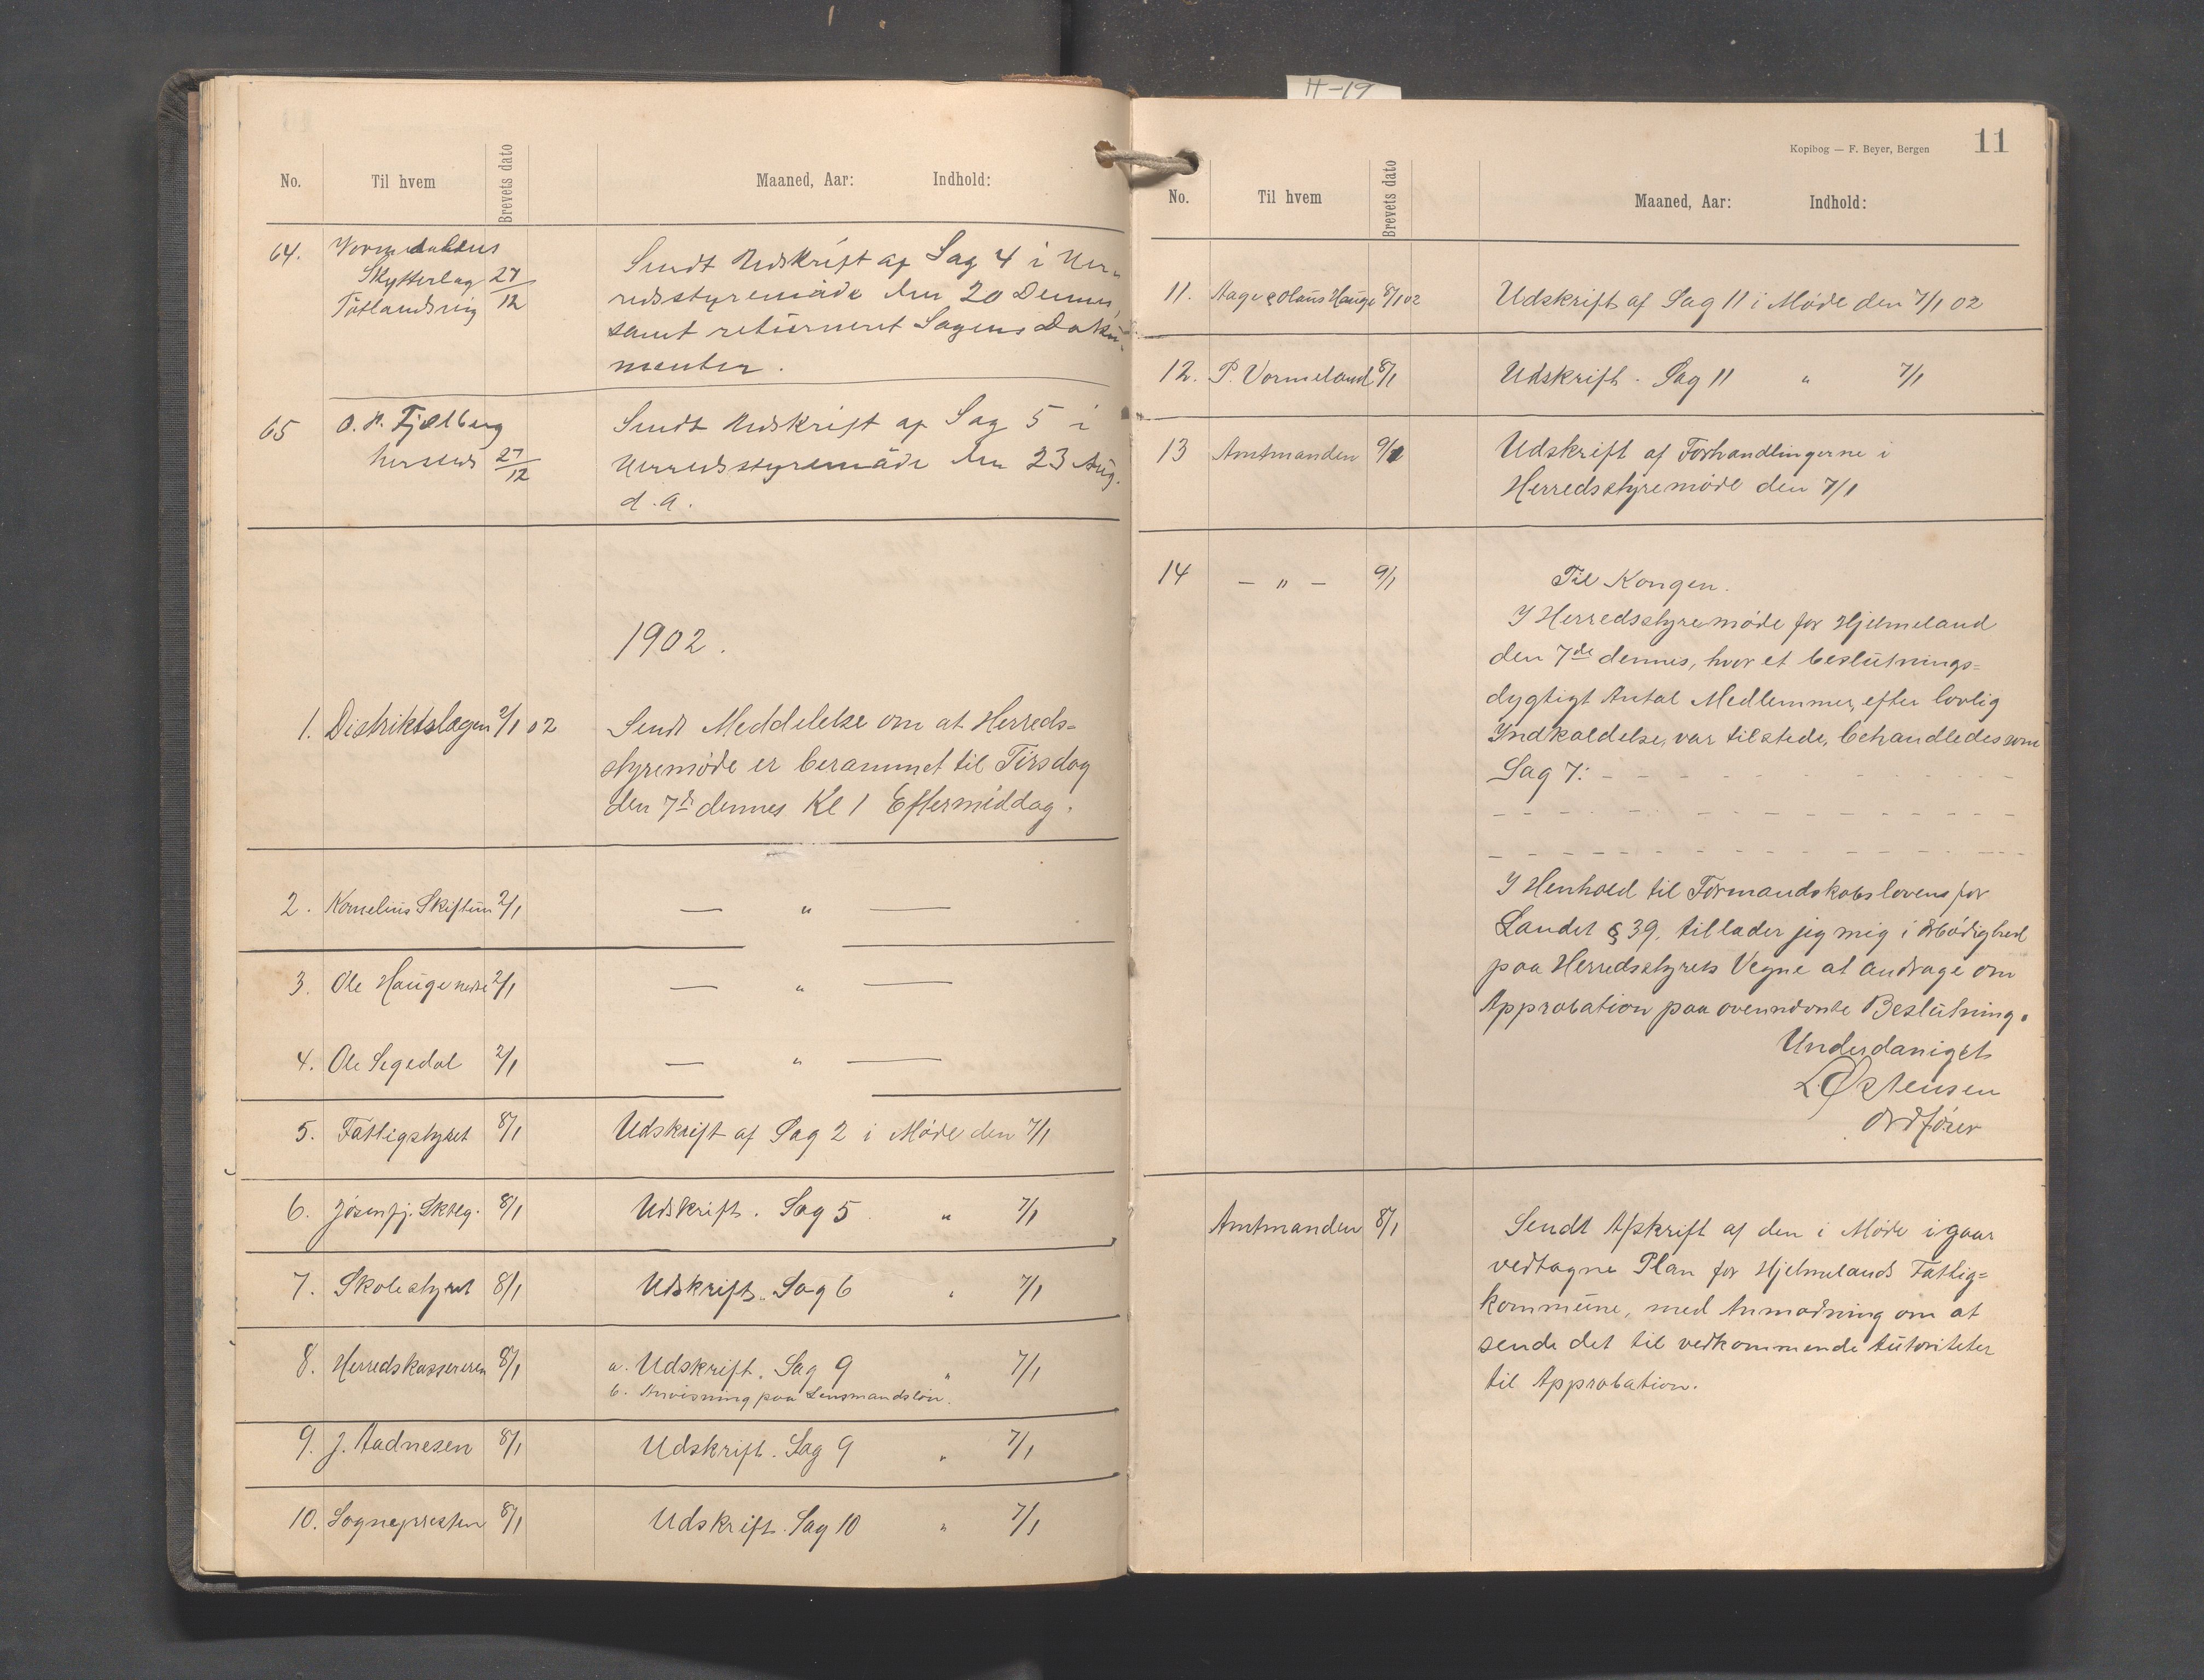 No. Til hvem Brevets dato Maaned, Aar: Indhold:
64. Vormedalens
Skytterlag 27/12
Tøtlandsvig
Sendt Udskrift af Sag 4 i Her-
redsstyremøde den 20 Dennes
samt returneret Sagens Doku-
menter.
65 O. H. Fjelberg
hersteds 27/12
Sendt Udskrift af Sag 5 i
Herredsstyremøde den 23 Aug.
d.a.
1902.
1. Distriktslægen 2/1 02 Sendt Meddelelse om at Herreds=
styremøde er berammet til Tirsdag
den 7de dennes Kl 1 Eftermiddag.
2. Kornelius Skiftun 2/1 — " —
3. Ole Hauge nedre 2/1 — " —
4. Ole Segedal 2/1 — " —
5. Fattigstyret 8/1 Udskrift af Sag 2 i Møde den 7/1
6. Jøsenfj. Skbg. 8/1 Udskrift. Sag 5 " 7/1
7. Skolestyret 8/1 Udskrift. Sag 6 " 7/1
8. Herredskassereren 8/1 a. Udskrift. Sag 9 " 7/1
b. Anvisning paa Lensmandsløn.
9. J. Aadnesen 8/1 Udskrift. Sag 9 " 7/1
10. Sognepresten 8/1 Udskrift. Sag 10 " 7/1
H-19
Kopibog — F. Beyer, Bergen 11
No. Til hvem Brevets dato Maaned, Aar: Indhold:
11. Aage & Olaus Hauge 8/1 02 Udskrift af Sag 11 i Møde den 7/1 02
12. P. Vormeland 8/1 Udskrift. Sag 11 " 7/1
13 Amtmanden 9/1 Udskrift af Forhandlingerne i
Herredsstyremøde den 7/1
14 — " — 9/1 Til Kongen.
I Herredsstyremøde for Hjelmeland
den 7de dennes, hvor et beslutnings=
dygtigt Antal Medlemmer, efter lovlig
Indkaldelse, var tilstede, behandledes som
Sag 7: - - - - - - - - - -
- - - - - - - - - - - - -
- - - - - - - - - - - - -
I Henhold til Formandskabslovens for
Landet § 39. tillader jeg mig i Ærbødighed
paa Herredsstyrets Vegne at andrage om
Approbation paa ovennævnte Beslutning.
Underdanigst
L Østensen
Ordfører
Amtmanden 8/1 Sendt Afskrift af den i Møde igaar
vedtagne Plan for Hjelmelands Fattig=
kommune, med Anmodning om at
sende det til vedkommende Autoriteter
til Approbation.